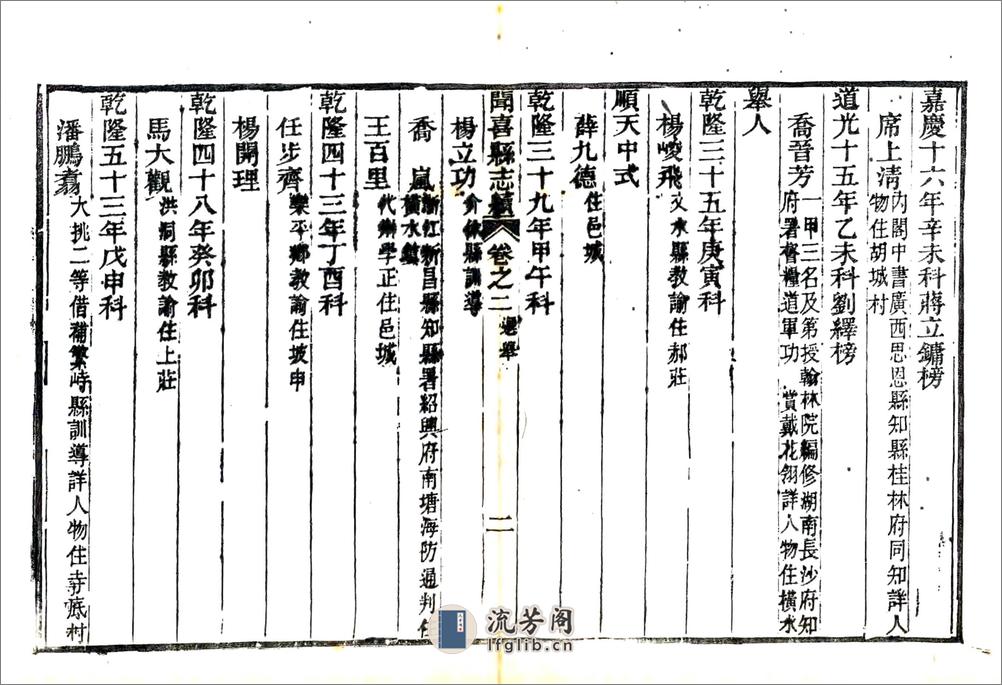 嘉慶十六年辛未科蔣立鏞榜
席上清內閣中書廣西思恩縣知縣桂林府同知詳人
物住胡城村
道光十五年乙未科劉繹榜
喬晉芳一甲三名及第授翰林院編修湖南長沙府知
府署督糧道軍功 賞戴花翎詳人物住橫水
舉人
乾隆三十五年庚寅科
楊崚飛文水縣教諭住郝莊
順天中式
薛九德住邑城
乾隆三十九年甲午科
聞喜縣志續 卷之二 選舉 二
楊立功介休縣訓導
喬嵐浙江新昌縣知縣署紹興府南塘海防通判住
橫水鎮
王百里代州學正住邑城
乾隆四十三年丁酉科
任步齊樂平鄉教諭住坡申
楊開理
乾隆四十八年癸卯科
馬大觀洪洞縣教諭住上莊
乾隆五十三年戊申科
潘鵬翥大挑二等借補繁峙縣訓導詳人物住寺底村
流芳阁
lfglib.cn